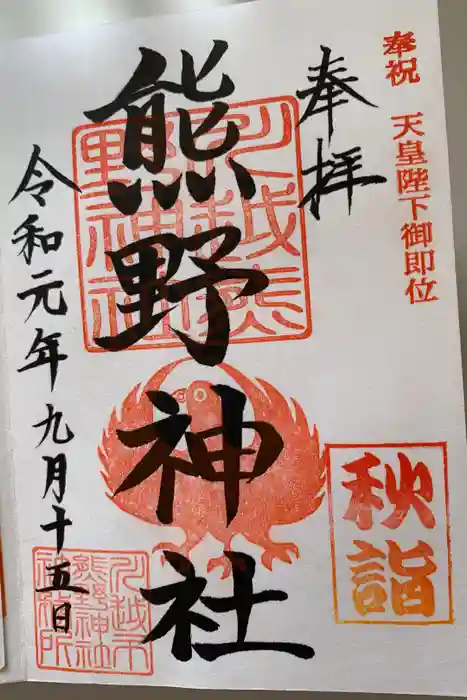 奉祝 天皇陛下御即位
奉拝
熊野神社
令和元年九月十五日
秋詣
川越熊野神社
川越市熊野神社社務所